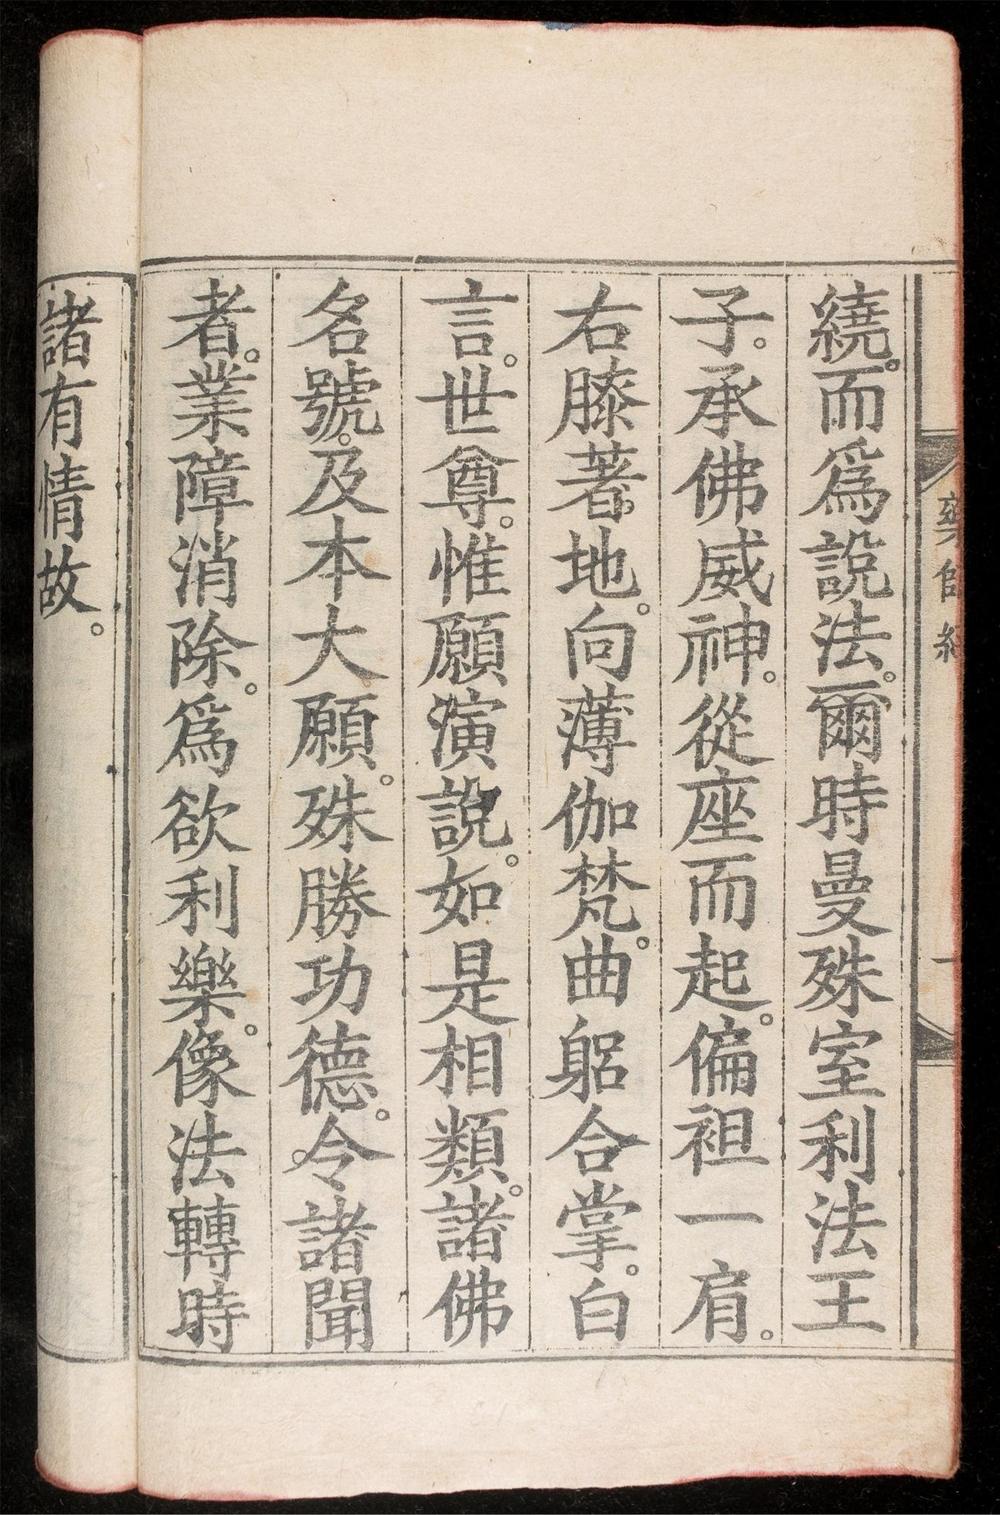 藥師經
一
繞。而爲說法。爾時曼殊室利法王
子。承佛威神。從座而起。偏袒一肩。
右膝著地。向薄伽梵。曲躬合掌。白
言。世尊。惟願演說。如是相類。諸佛
名號。及本大願。殊勝功德。令諸聞
者。業障消除。爲欲利樂。像法轉時
諸有情故。